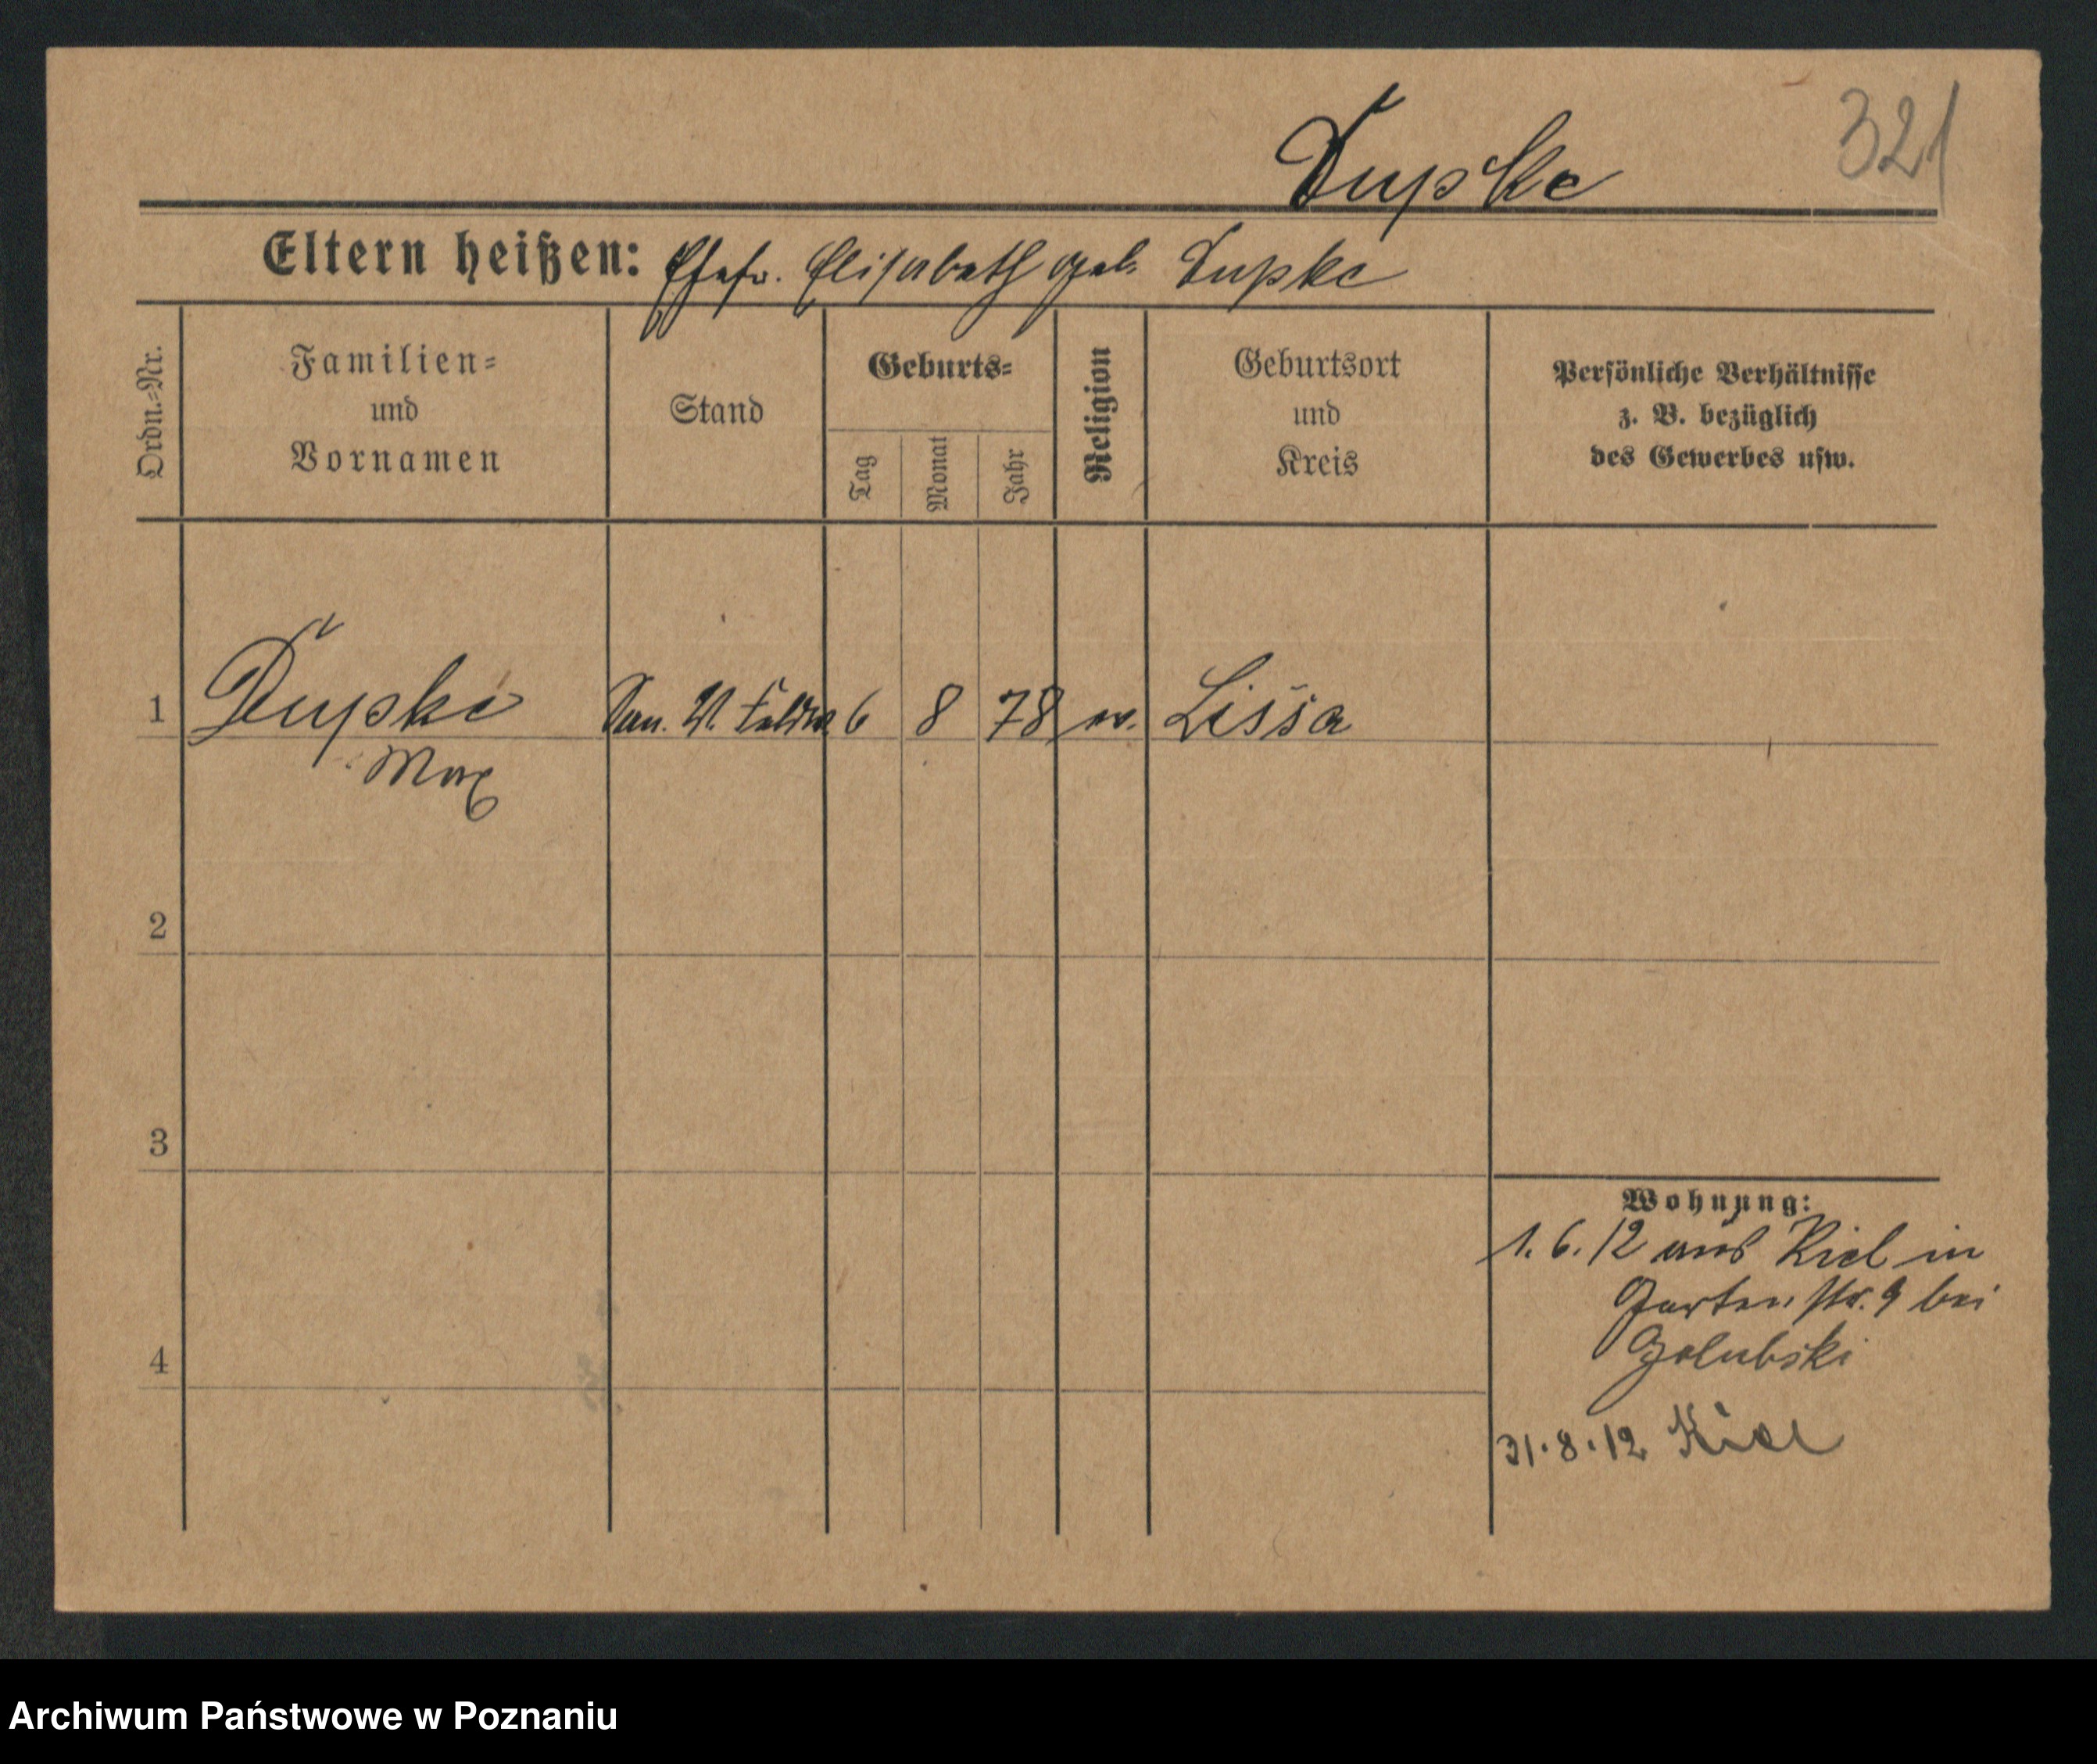 Dupke
321
Eltern heißen: Ehefr. Elisabeth geb. Dupke
Ordn.=Nr.
Familien=
und
Vornamen
Stand
Geburts=
Tag
Monat
Jahr
Religion
Geburtsort
und
Kreis
Persönliche Verhältnisse
z. B. bezüglich
des Gewerbes usw.
1 Dupke 6 8 78 ev. Lissa
Max
2
3
4
Wohnung:
1. 6. 12 aus Kiel in
Gartenstr. 9 bei
Golubski
31. 8. 12 Kiel
Archiwum Państwowe w Poznaniu